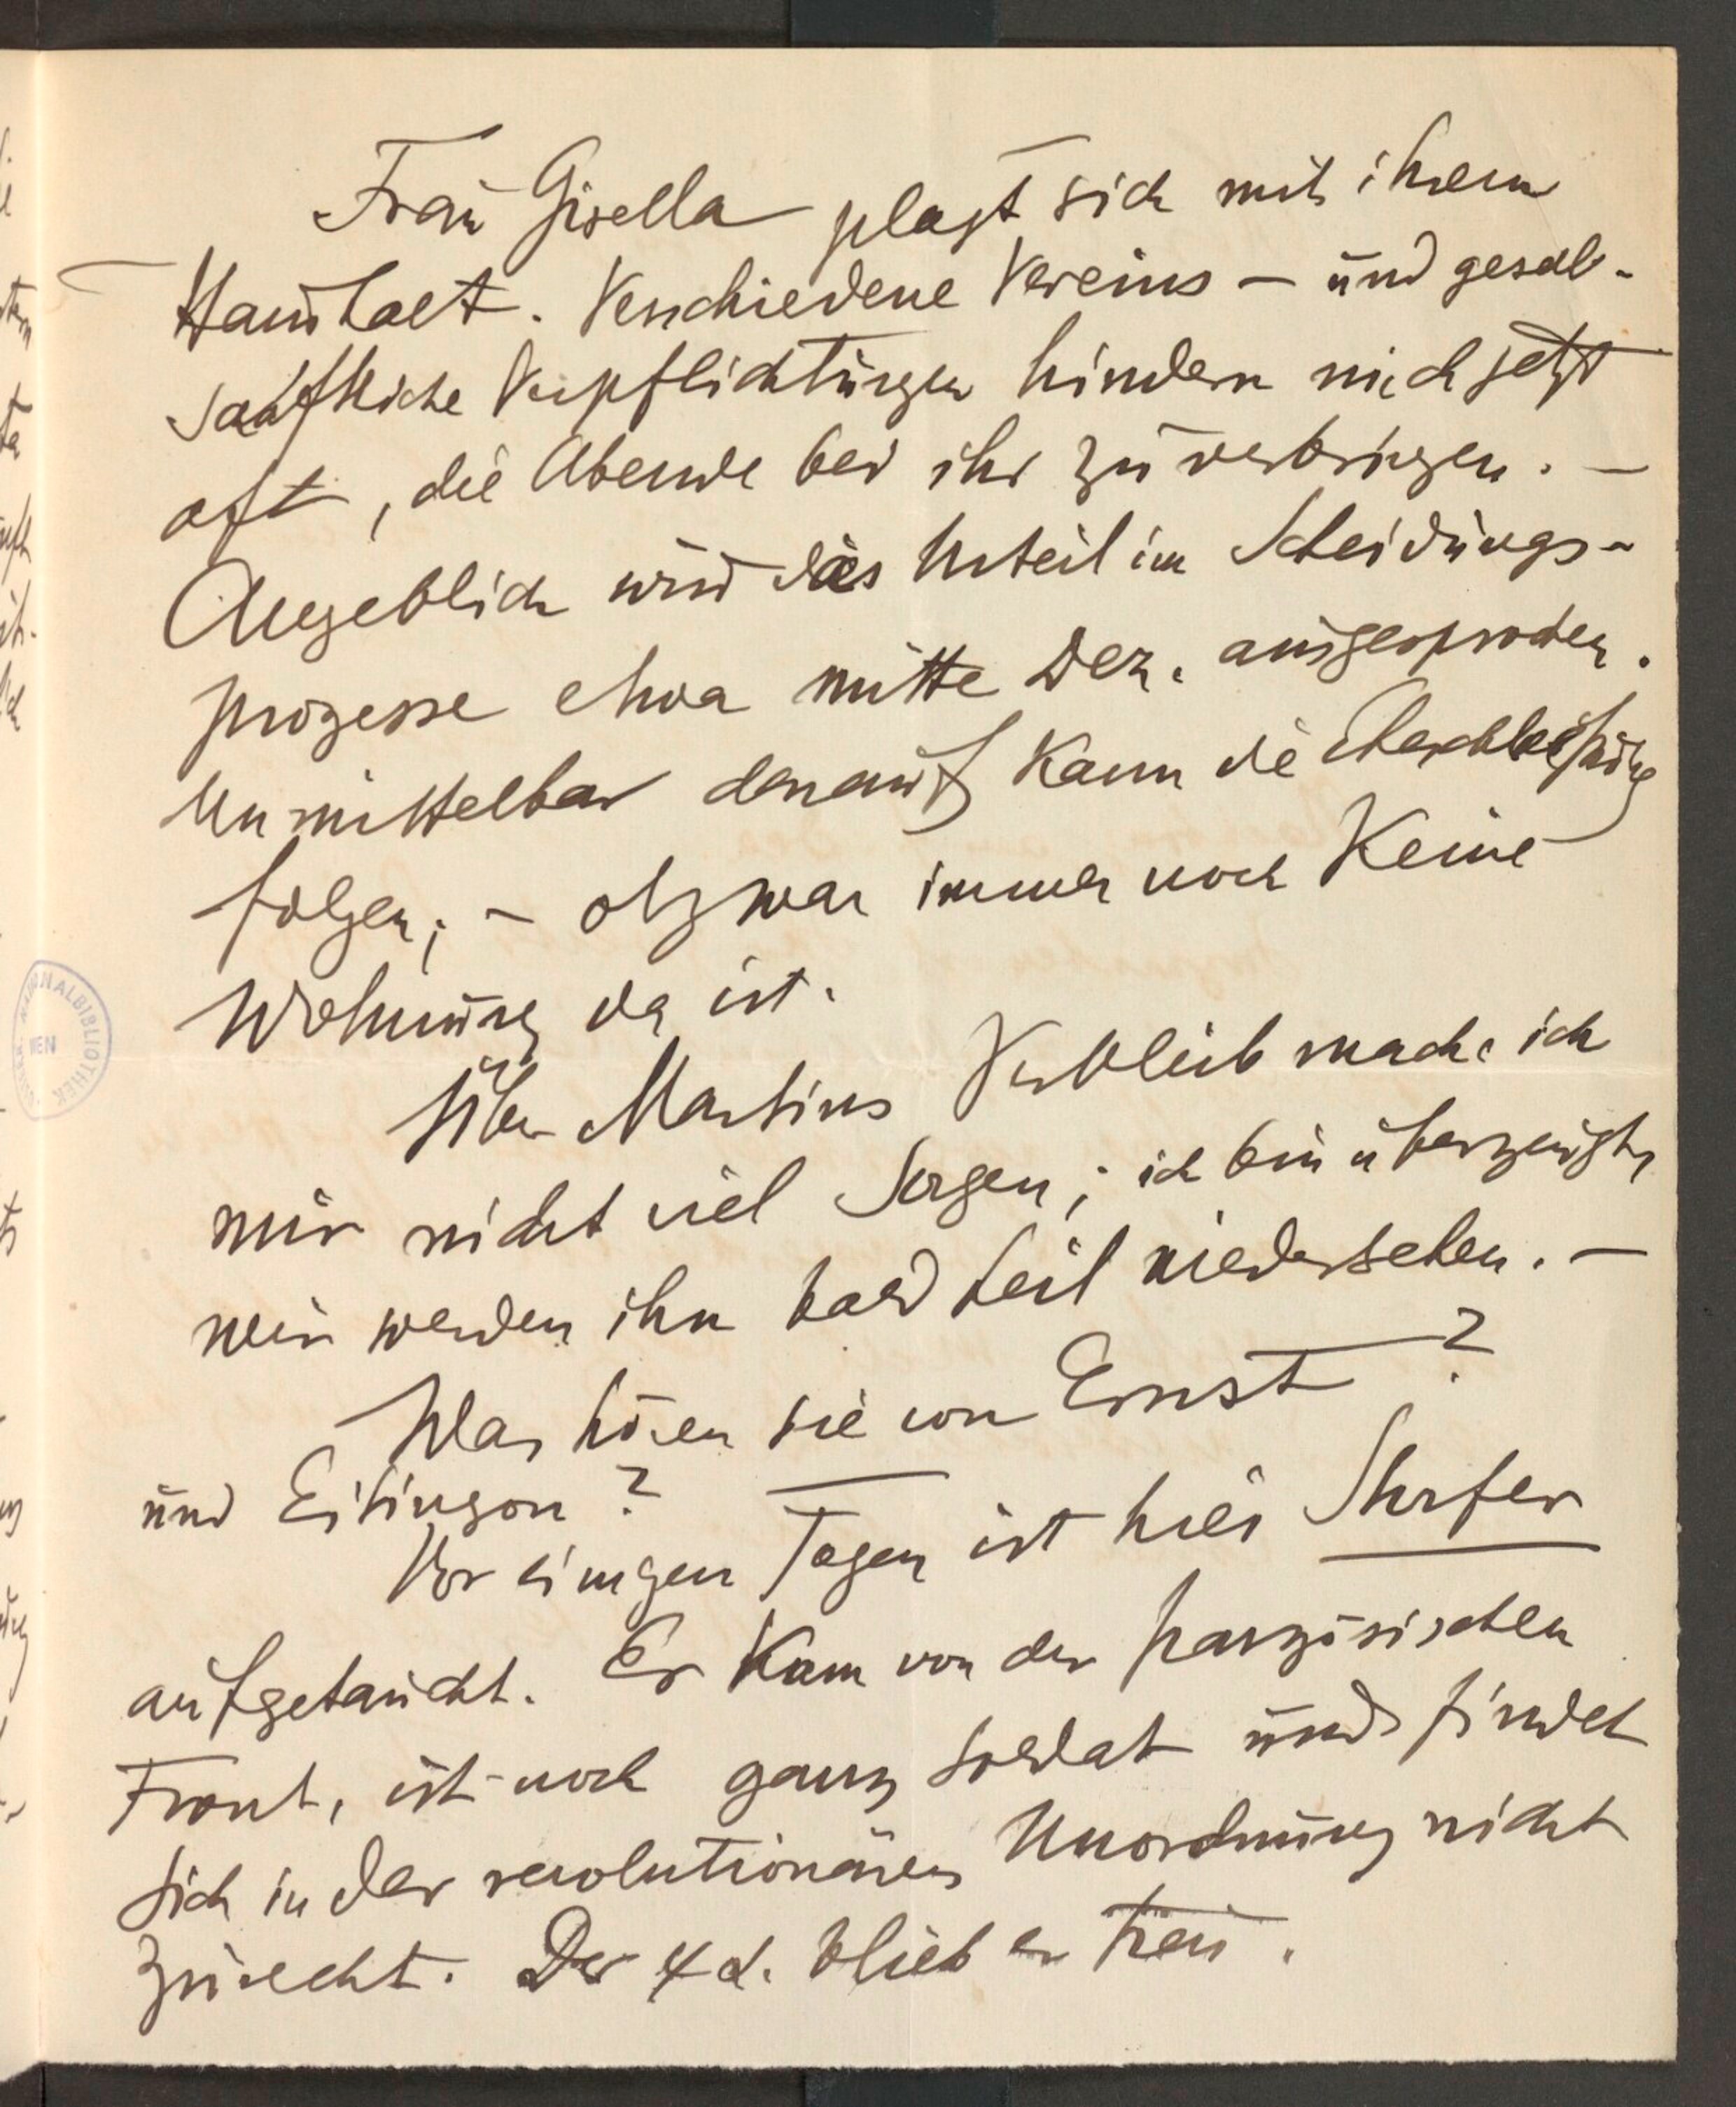 Frau Gisella plagt sich mit ihrem
Haushalt. Verschiedene Vereins – und gesell-
schaftliche Verpflichtungen hindern mich jetzt
oft, die Abende bei ihr zu verbringen. –
Angeblich wird das Urteil im Scheidungs-
prozesse etwa mitte Dez. ausgesprochen.
Unmittelbar darauf kann die Eheschließung
folgen; – obzwar immer noch keine
Wohnung da ist.
Über Martins Verbleib mache ich
mir nicht viel Sorgen; ich bin überzeugt,
wir werden ihn bald heil wiedersehen. –
Was hören sie von Ernst?
und Eitingon? –
Vor einigen Tagen ist hier Storfer
aufgetaucht. Er kam von der französischen
Front, ist noch ganz Soldat und findet
sich in der revolutionären Unordnung nicht
zurecht. Der ψα. blieb er treu.
ÖSTERR. NATIONALBIBLIOTHEK
WIEN